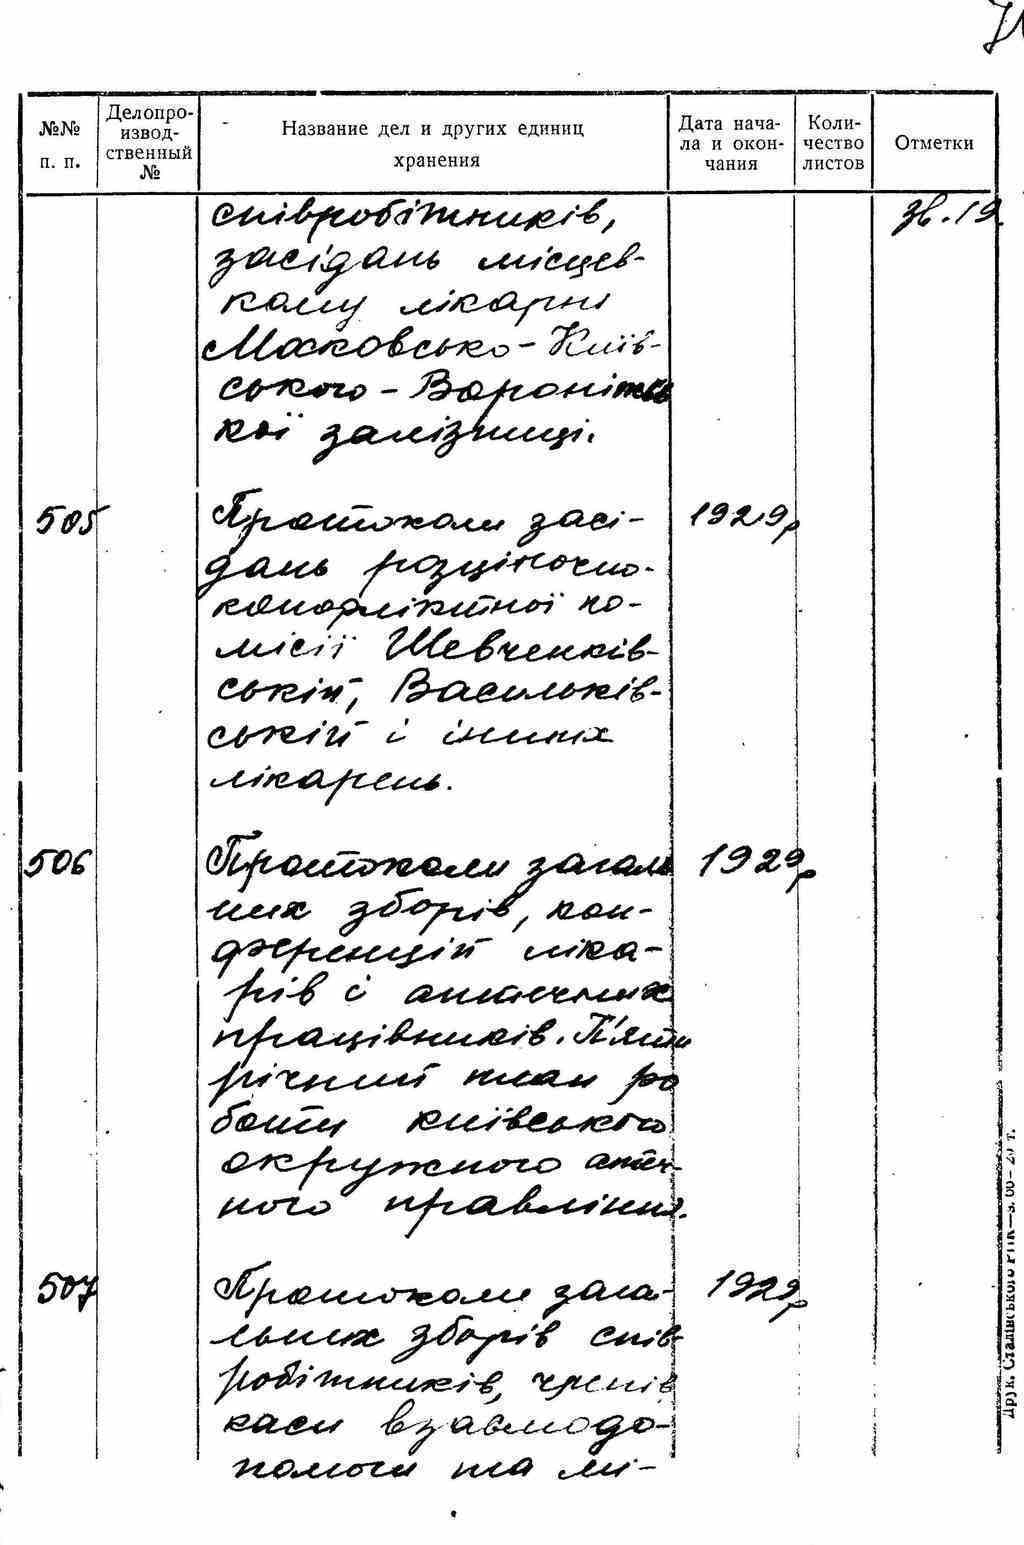 №№ п. п.
Делопро-
извод-
ственный
№
Название дел и других единиц
хранения
Дата нача-
ла и окон-
чания
Коли-
чество
листов
Отметки
співробітників,
зв. 19
засідань місцев-
кому лікарні
Московсько-Київ-
ського-Вороніжсь
кої залізниці.
505
Протоколи засі-
1929р
дань розціночно-
конфліктної ко-
місії Шевченків-
ській, Васильків-
ській і інших
лікарень.
506
Протоколи загаль
1929р
них зборів, кон-
ференцій ліка-
рів і аптечних
працівників. П'яти
річний план ро
боти київського
окружного аптеч-
ного правління.
507
Протоколи зага-
1929р
льних зборів спів
робітників, членів
каси взаємодо-
помоги та мі-